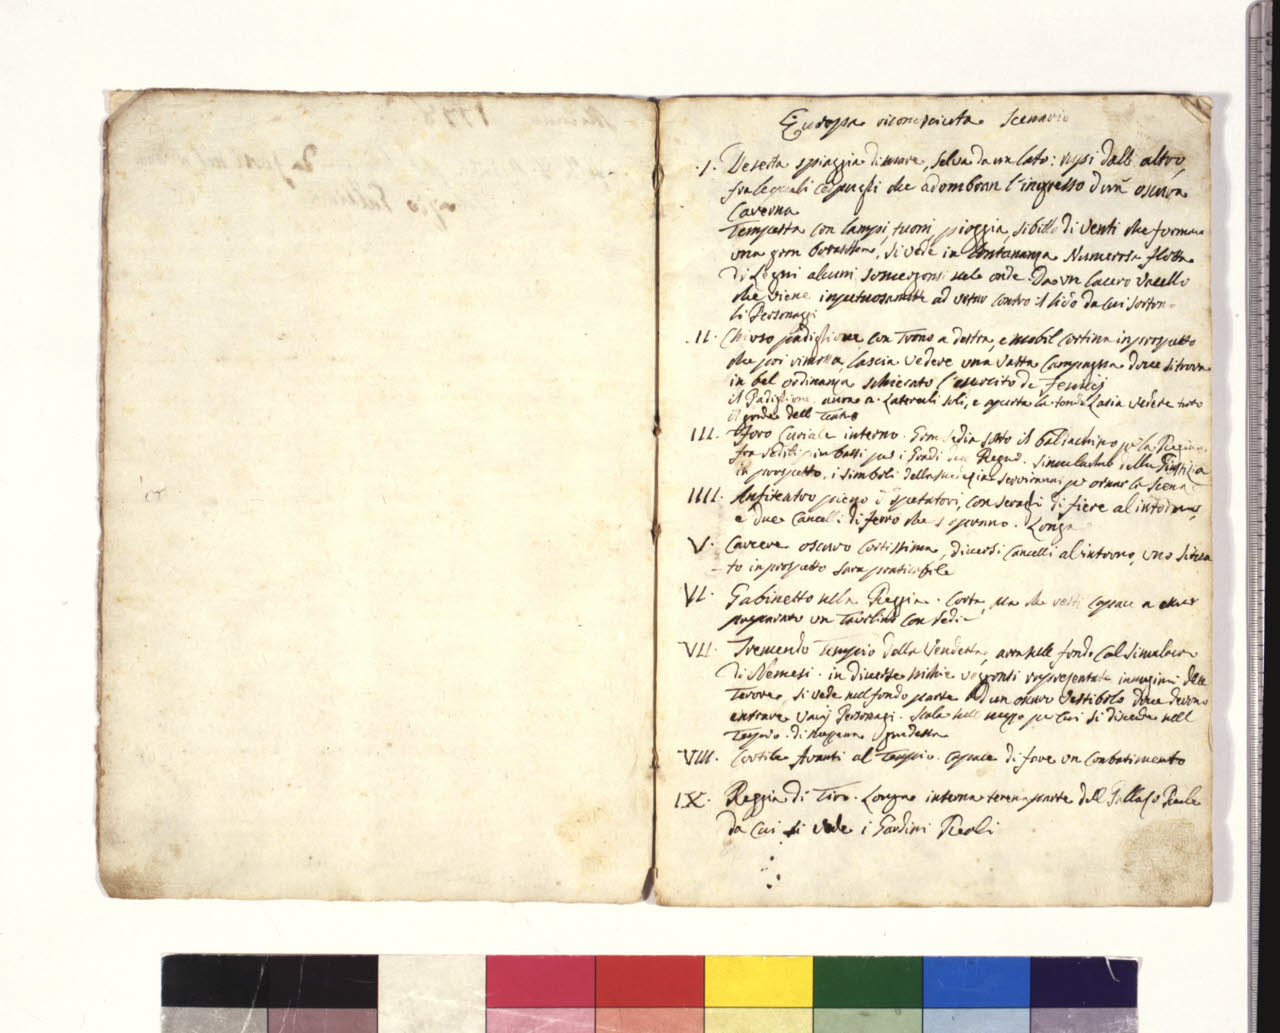 Europa riconosciuta Scenario
.I. Deserta spiaggia di mare, selva da un lato: rupi dall altro,
fra le quali cespugli che adombran l'ingresso d'una oscura
Caverna
Tempesta con lampi, tuoni, pioggia, sibillo di venti che formano
una gran, si vede in lontananza Numerosa flotta
di Legni alcuni somergonsi nele onde. Da un lacero vacello
che viene impetuosamente ad urtar contro il lido da cui sorton
li Personaggi
.II. Chiuso padiglione, con Trono a destra, e mobil cortina in prospetto
che poi rimossa, lascia vedere una vasta Campagna dove si trova
in bel ordinanza schierato l'esercito
il Padiglione a Laterali soli, e aperta la tenda Lascia vedere tuto
dell
III. Foro Curiale interno. Gran sedia sotto il baldachino per la Regina,
fra sedili più bassi per i Grandi del Regno. Simulacro della Giustizia
in prospetto, i simboli della serviranno per ornar la Scena
IIII. Anfiteatro pieno di spetatori, con seragli di fiere al intorno,
e due Cancelli di ferro che s'aprano. Longa
V. Carcere oscuro Cortissima, diversi Cancelli al intorno, uno situa
-to in prospetto sara praticabile
VI. Gabinetto nella Reggia. Corta, ma che resti capace a esser
preparato un Taulino con sedie
VII. Tremendo Tempio della Vendetta, ara nelle fondo col simulacro
di Nemesi. in diverse nichie vegonsi rapresentate immagini delle
Terrore. si vede nel fondo parte d un oscuro vestibolo dove devono
entrare varij Personagi. Scala nell mezzo per cui si discende nell
Tempio. di
VIII. Cortile Avanti al Tempio. capace di fare un Combatimento
IX. Reggia di Tiro. Longa interna terena parte dell Pallaso Reale
da cui si vede i Giardini Reali